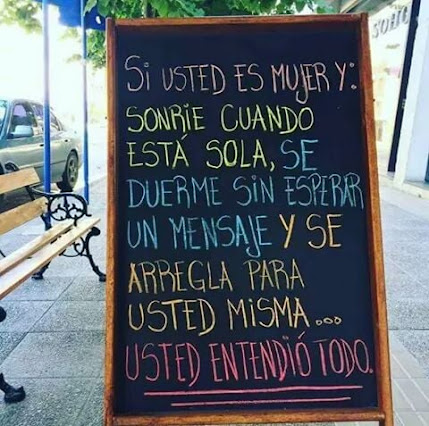 SI USTED ES MUJER Y:
SONRIE CUANDO
ESTÁ SOLA, SE
DUERME SIN ESPERAR
UN MENSAJE Y SE
ARREGLA PARA
USTED MISMA...
USTED ENTENDIÓ TODO.